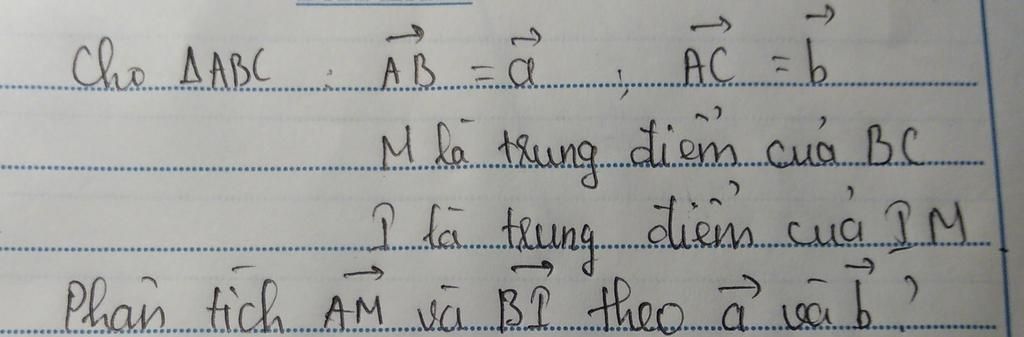 Cho ΔABC : A͞B⃗ = a⃗ ; AC⃗ = b⃗
M là trung điểm của BC
I là trung điểm của IM
Phân tích AM⃗ và BI⃗ theo a⃗ và b⃗ ?